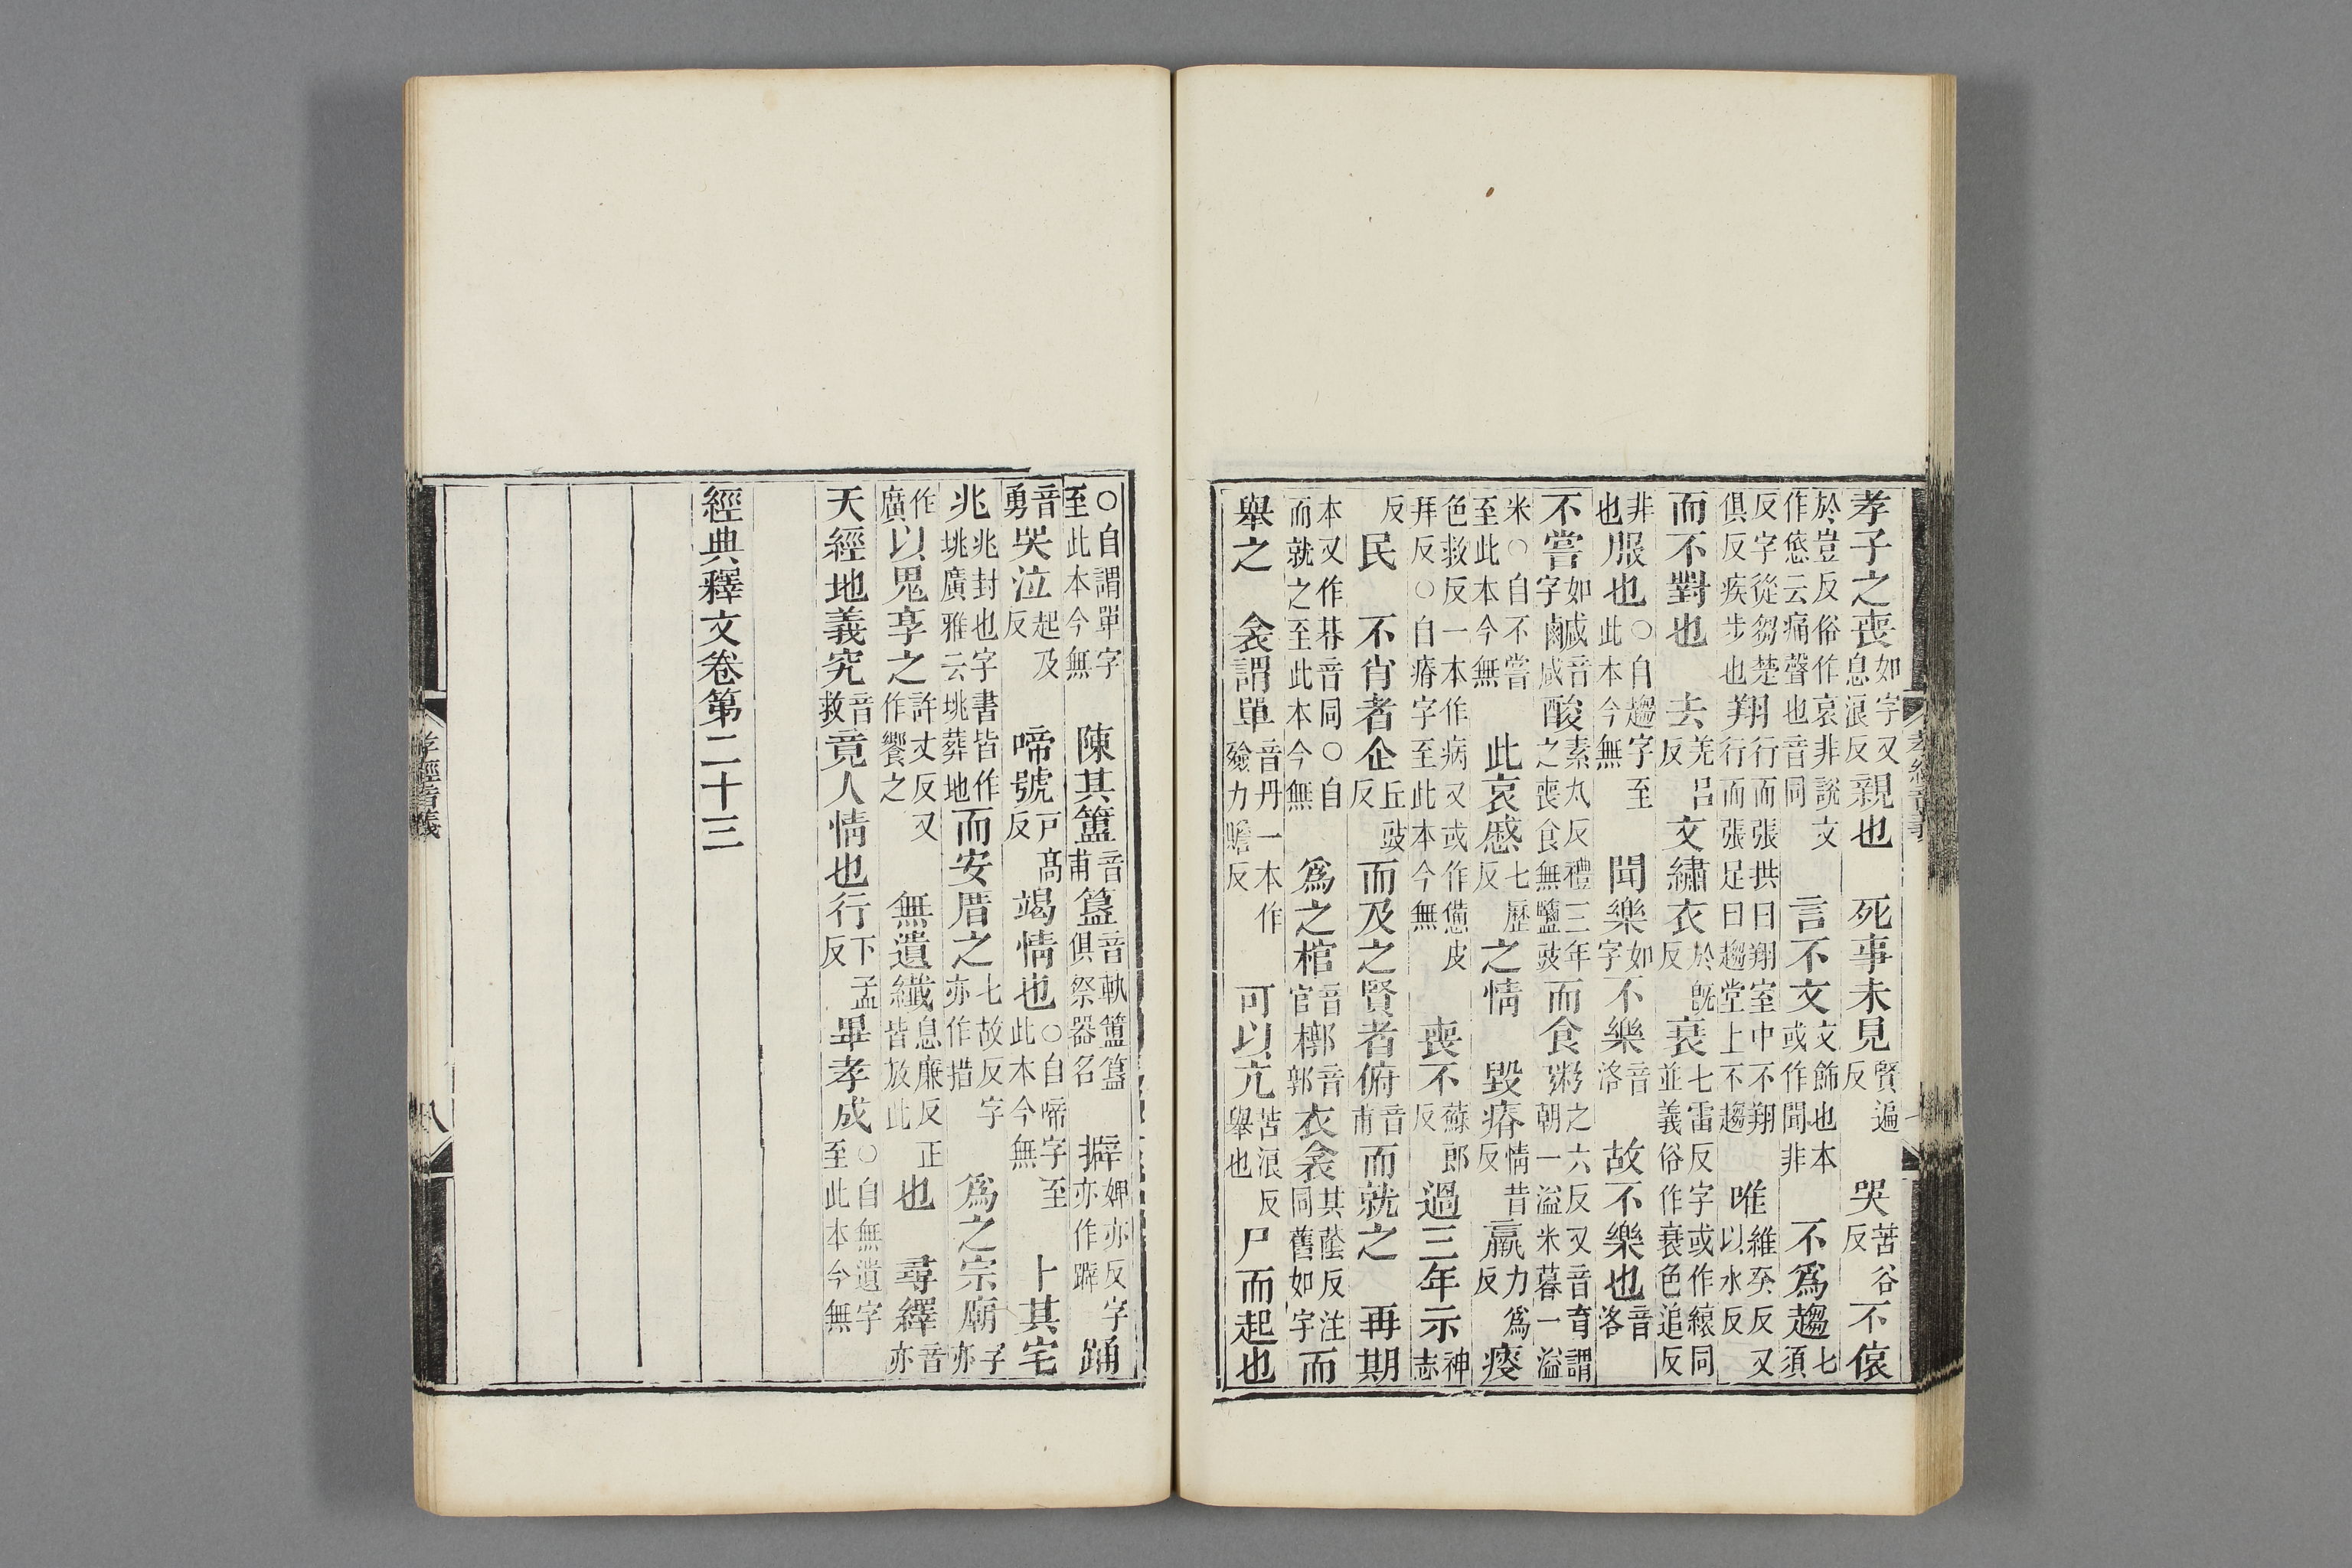 孝子之喪如字又息浪反親也　死事未見賢遍反　哭苦谷反不偯
於豈反俗作哀非說文作㥋云痛聲也音同　言不文文飾也本或作聞非　不爲趨七須
反字從芻楚俱反疾步也翔行而張拱曰翔室中不翔行而張足曰趨堂上不趨　唯維癸反又以水反
而不對也　去羌呂反文繡衣於旣反衰七雷反字或作縗同並義俗作衰色追反
非也服也○自趨字至此本今無　聞樂如字不樂音洛　故不樂也音洛
不嘗如字鹹音咸酸素丸反禮三年之喪食無鹽豉而食粥之六反又音育謂朝一溢米暮一溢
米○自不嘗至此本今無　此哀慼七歷反之情　毀瘠情昔反羸力爲反瘦
色救反一本作病又或作憊皮拜反○自瘠字至此本今無　喪不蘇郎反過三年示神志
反民　不肖者企丘豉反而及之賢者俯音甫而就之　再期
本又作朞音同○自而就之至此本今無　爲之棺音官槨音郭衣衾其蔭反注同舊如字而
舉之　衾謂單音丹一本作殮力贍反　可以亢苦浪反舉也尸而起也
○自謂單字至此本今無　陳其簠音甫簋音軌簠簋俱祭器名　擗婢亦反字亦作躃踊
音勇哭泣起及反　啼號戸髙反竭情也○自啼字至此本今無　卜其宅
兆兆封也字書皆作垗廣雅云垗葬地而安厝之七故反字亦作措　爲之宗廟子亦
作廣以鬼享之許丈反又作饗之　無遺纎息廉反正皆放此也　尋繹音亦
天經地義究音救竟人情也行下孟反畢孝成○自無遺字至此本今無
經典釋文卷第二十三
孝經音義
八
孝經音義